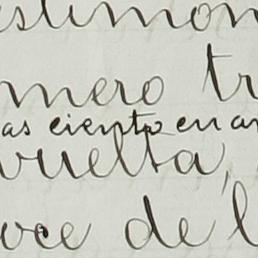 estimon
mero tr
as ciento en ar
vuelta,
oce de l